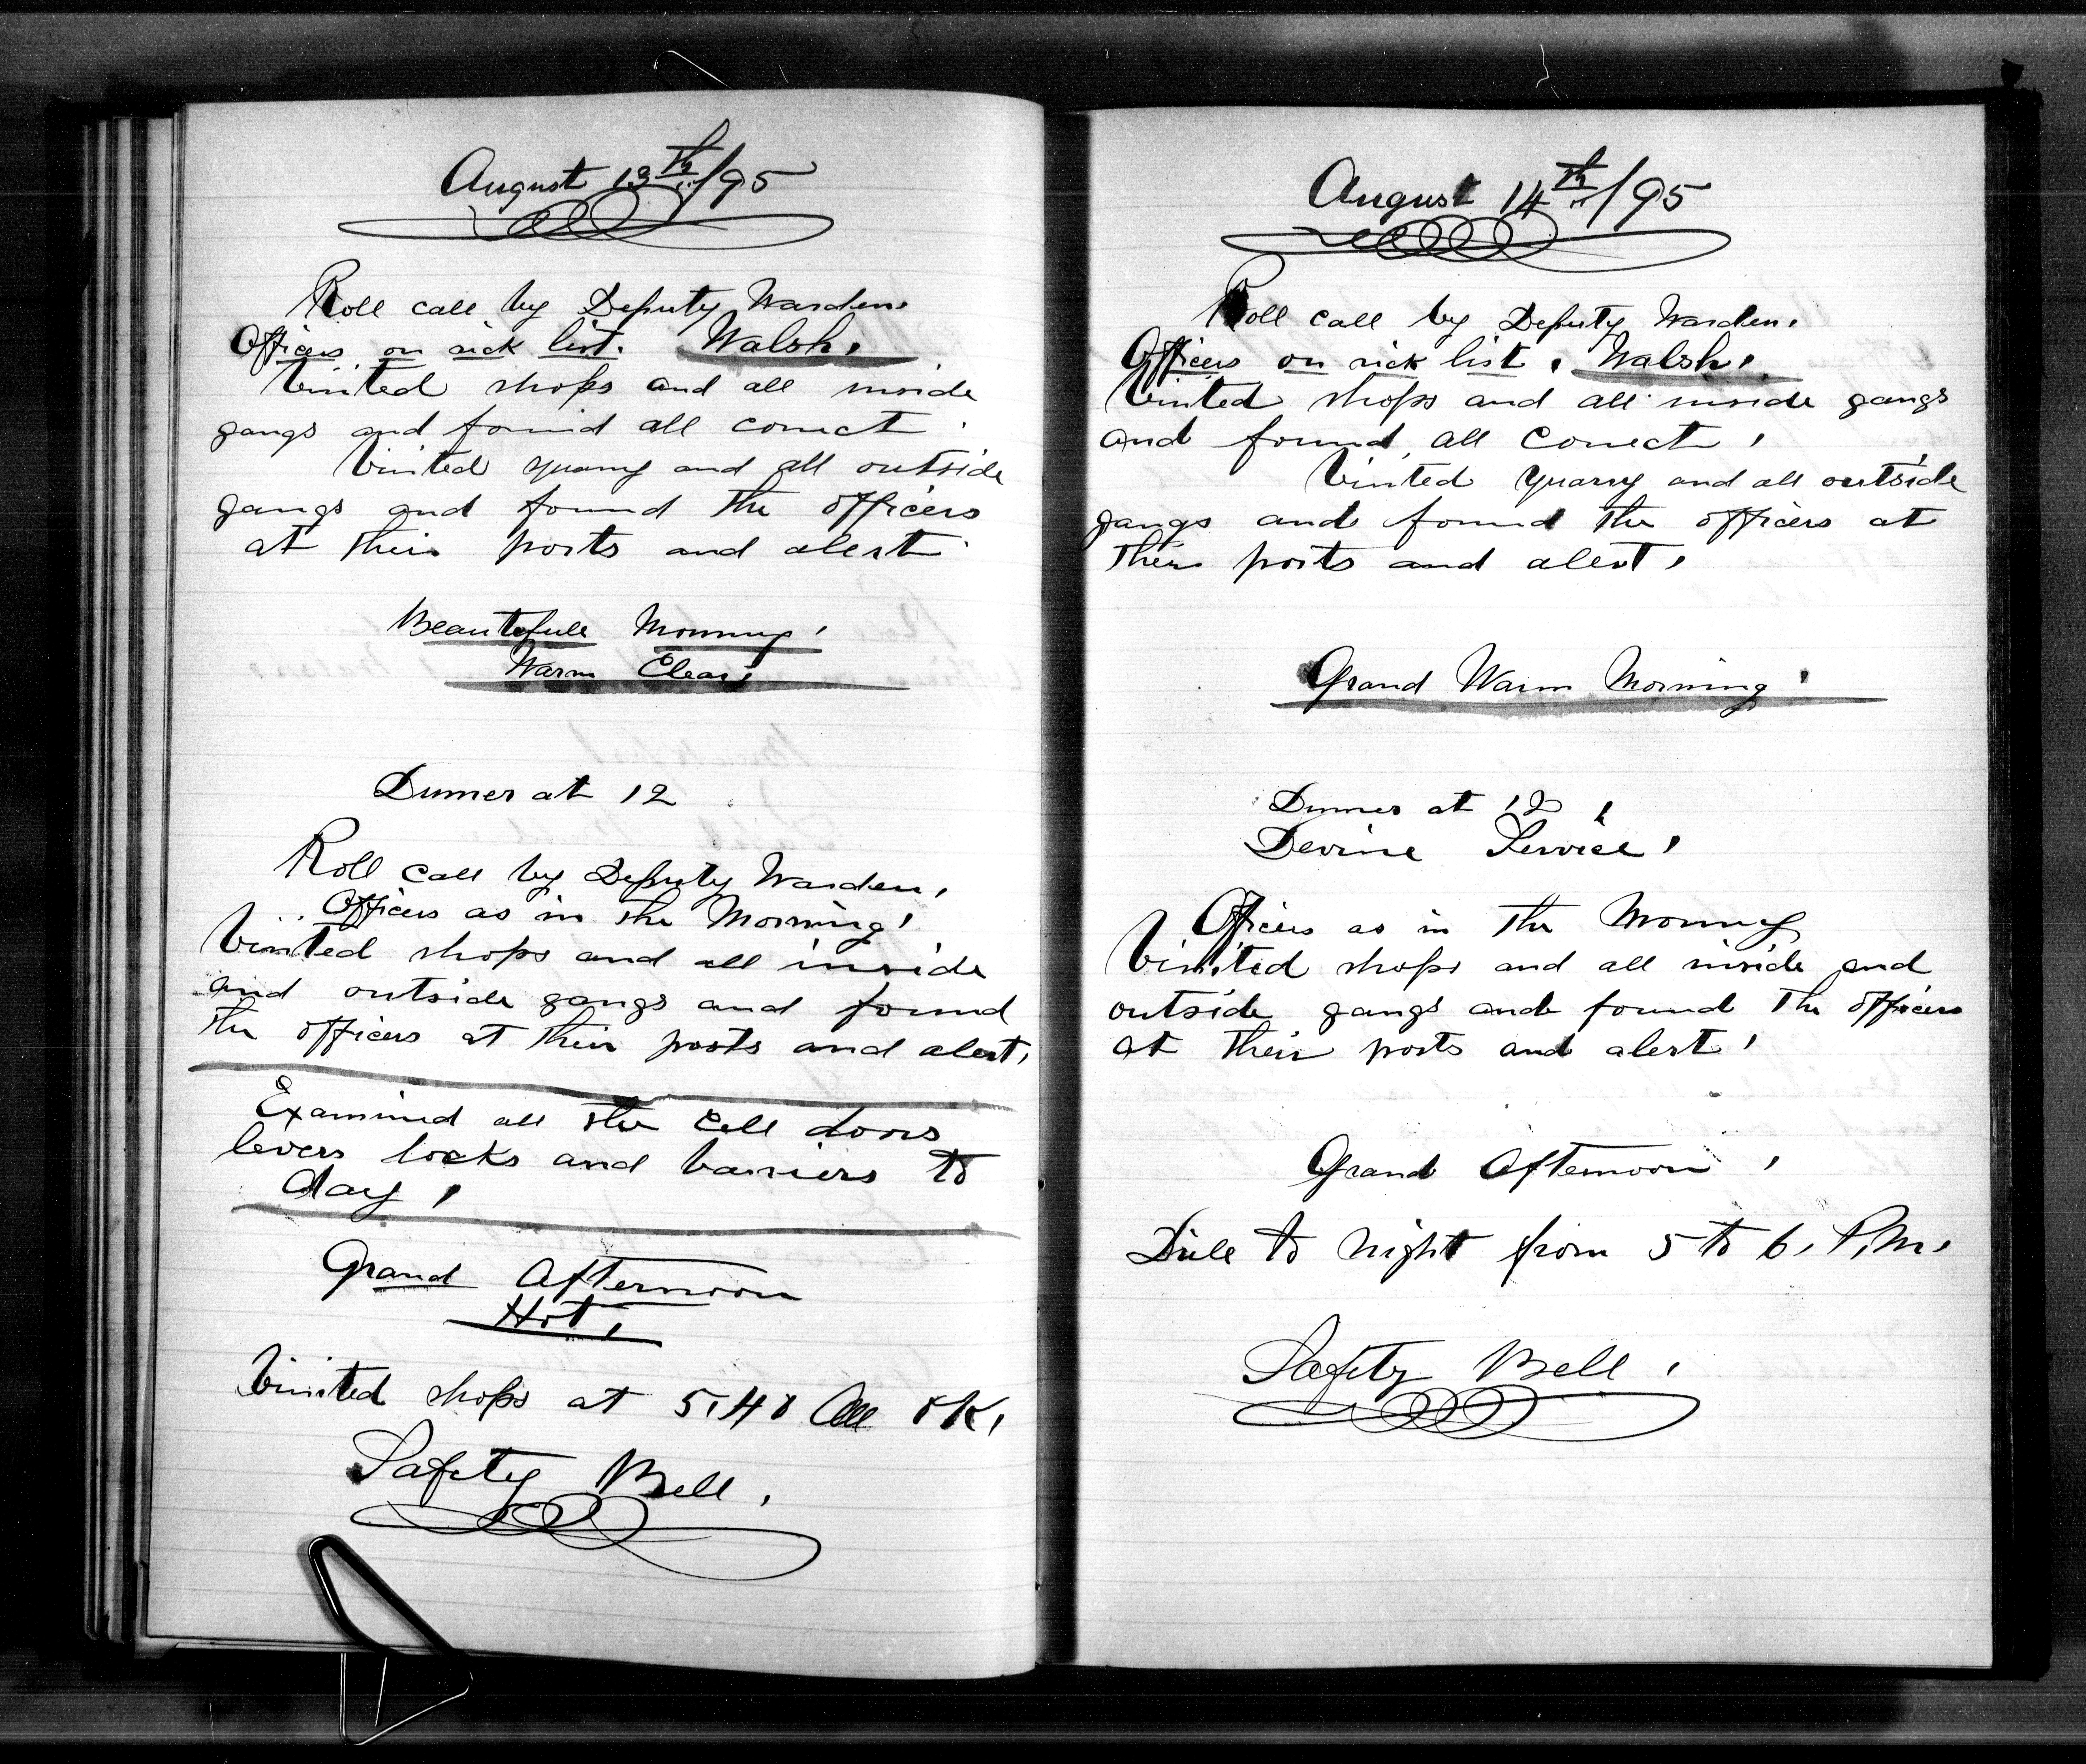 August 13th/95
Roll call by Deputy Warden.
Officers on sick list. Walsh.
Visited shops and all inside
gangs and found all correct.
Visited quarry and all outside
gangs and found the officers
at their posts and alert.
Beautefull Morning.
Warm Clear.
Dinner at 12
Roll call by Deputy Warden.
Officers as in the Morning.
Visited shops and all inside
and outside gangs and found
the officers at their posts and alert.
Examined all the cell doors
levers locks and barriers to
day.
Grand Afternoon
Hot.
Visited shops at 5.40 All OK.
Safety Bell.
August 14th/95
Roll call by Deputy Warden.
Officers on sick list. Walsh.
Visited shops and all inside gangs
and found all correct.
Visited quarry and all outside
gangs and found the officers at
their posts and alert.
Grand Warm Morning.
Dinner at 12.
Devine Service.
Officers as in the Morning
Visited shops and all inside and
outside gangs and found the officers
at their posts and alert.
Grand Afternoon.
Drill to night from 5 to 6. P.M.
Safety Bell.